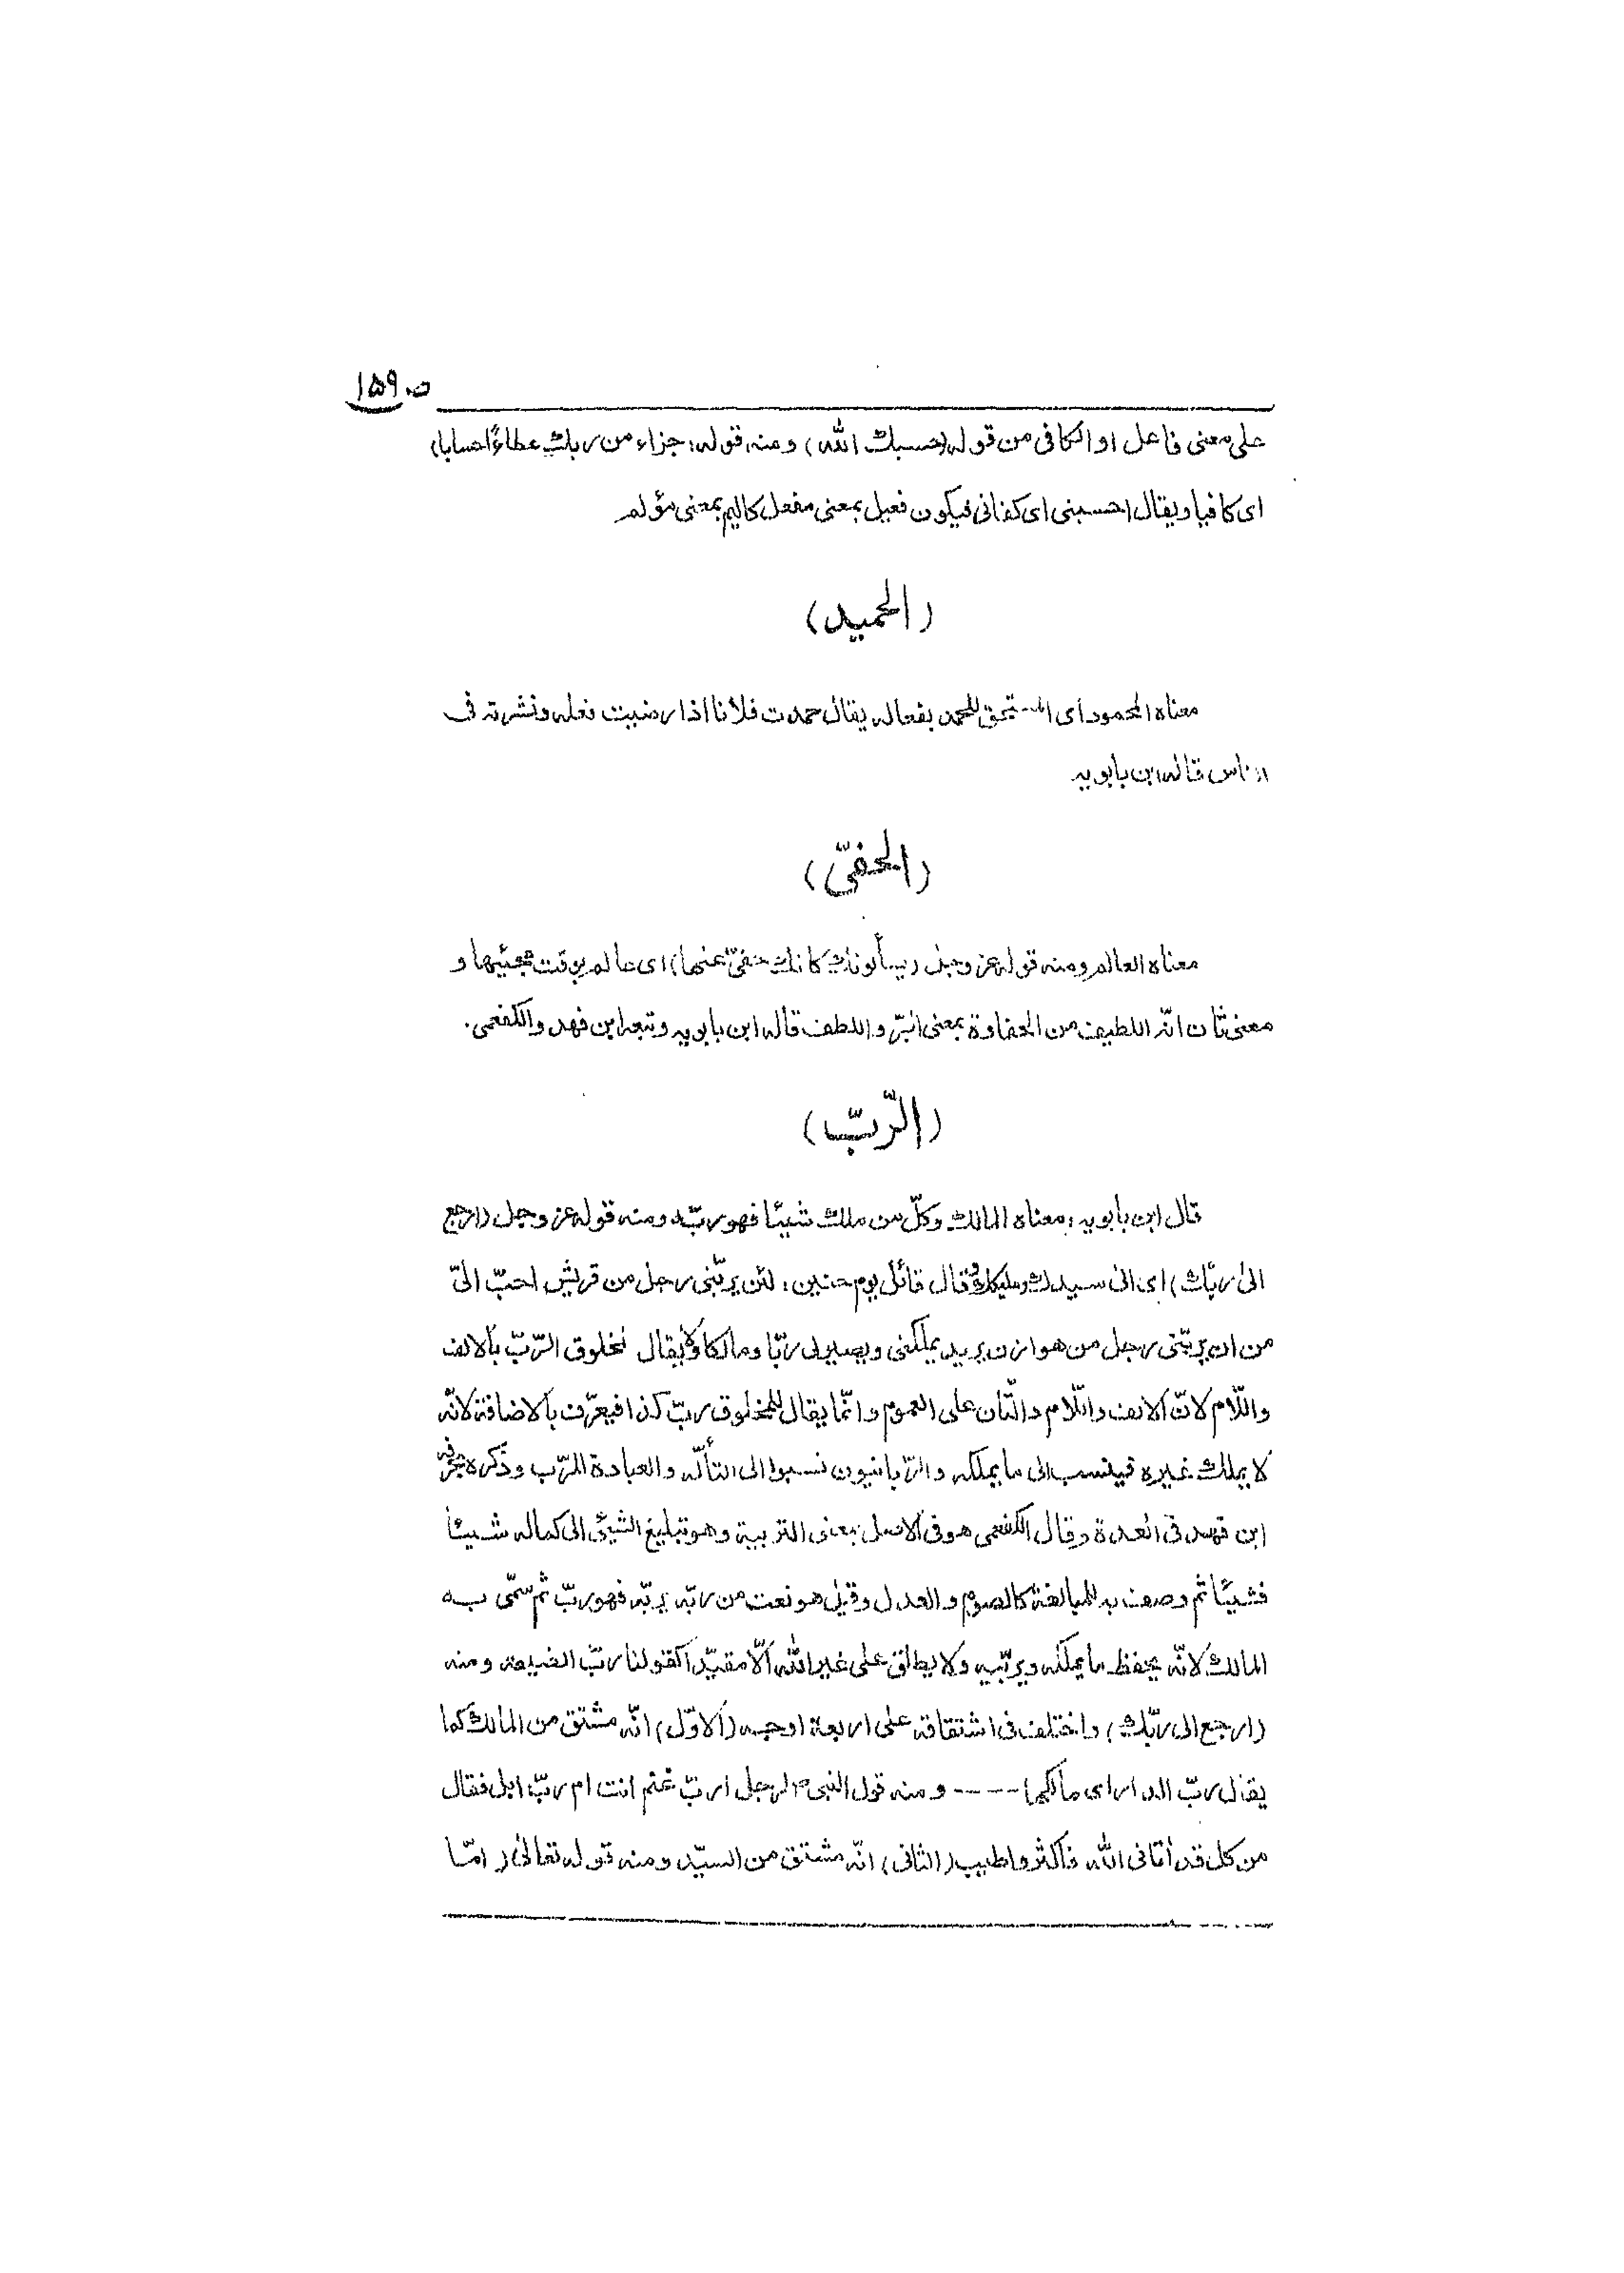 ت. ۱۵۹
على معنى فاعل او الكافى من قوله (حسبك الله) ومنه قوله: جزاء من ربك عطاءً احسابا)
اى كافيا ويقال احسبنى اى كفانى فيكون فعيل بمعنى مفعل كاليم بمعنى مؤلم
(الحميد)
معناه المحمود اى المستحق للحمد بفعاله يقال حمدت فلانا اذا رضيت فعله ونشرته فى
الناس قاله ابن بابويه
(الحفىّ)
معناه العالم ومنه قوله عز وجل (يسألونك كانك حفىّ عنها) اى عالم بوقت مجيئها و
معنى ثان انّه اللطيف من الحفاوة بمعنى البرّ واللطف قاله ابن بابويه وتبعه ابن فهد والكفعمى.
(الرّبّ)
قال ابن بابويه: معناه المالك وكلّ من ملك شيئا فهو ربّه ومنه قوله عز وجل (ارجع
الى ربّك) اى الى سيدك ومليكك وقال قائل يوم حنين: لئن يربّنى رجل من قريش احبّ الىّ
من ان يربّنى رجل من هوازن يريد يملكنى ويصير لى ربّا ومالكا ولا يقال لمخلوق الرّبّ بالالف
واللّام لانّ الالف واللّام دالّتان على العموم وانّما يقال للمخلوق ربّ كذا فيعرّف بالاضافة لانّه
لا يملك غيره فينسب الى ما يملكه والرّبانيون نسبوا الى التألّه والعبادة للرّب وذكره بحرفه
ابن فهد فى العدة وقال الكفعمى هو فى الاصل بمعنى التربية وهو تبليغ الشيئ الى كماله شيئا
فشيئا ثم وصف به للمبالغة كالصوم والعدل وقيل هو نعت من ربّه يربّه فهو ربّ ثم سمّى به
المالك لانّه يحفظ ما يملكه ويربّيه ولا يطلق على غير الله الّا مقيّدا كقولنا ربّ الضيعه ومنه
(ارجع الى ربّك) واختلف فى اشتقاقه على اربعة اوجه (الاوّل) انّه مشتق من المالك كما
يقال ربّ الدار اى مالكها ---- ومنه قول النبى ص لرجل اربّ غنم انت ام ربّ ابل فقال
من كل قد أتانى الله فاكثر واطيب (الثانى) انّه مشتق من السيّد ومنه قوله تعالى (امّا